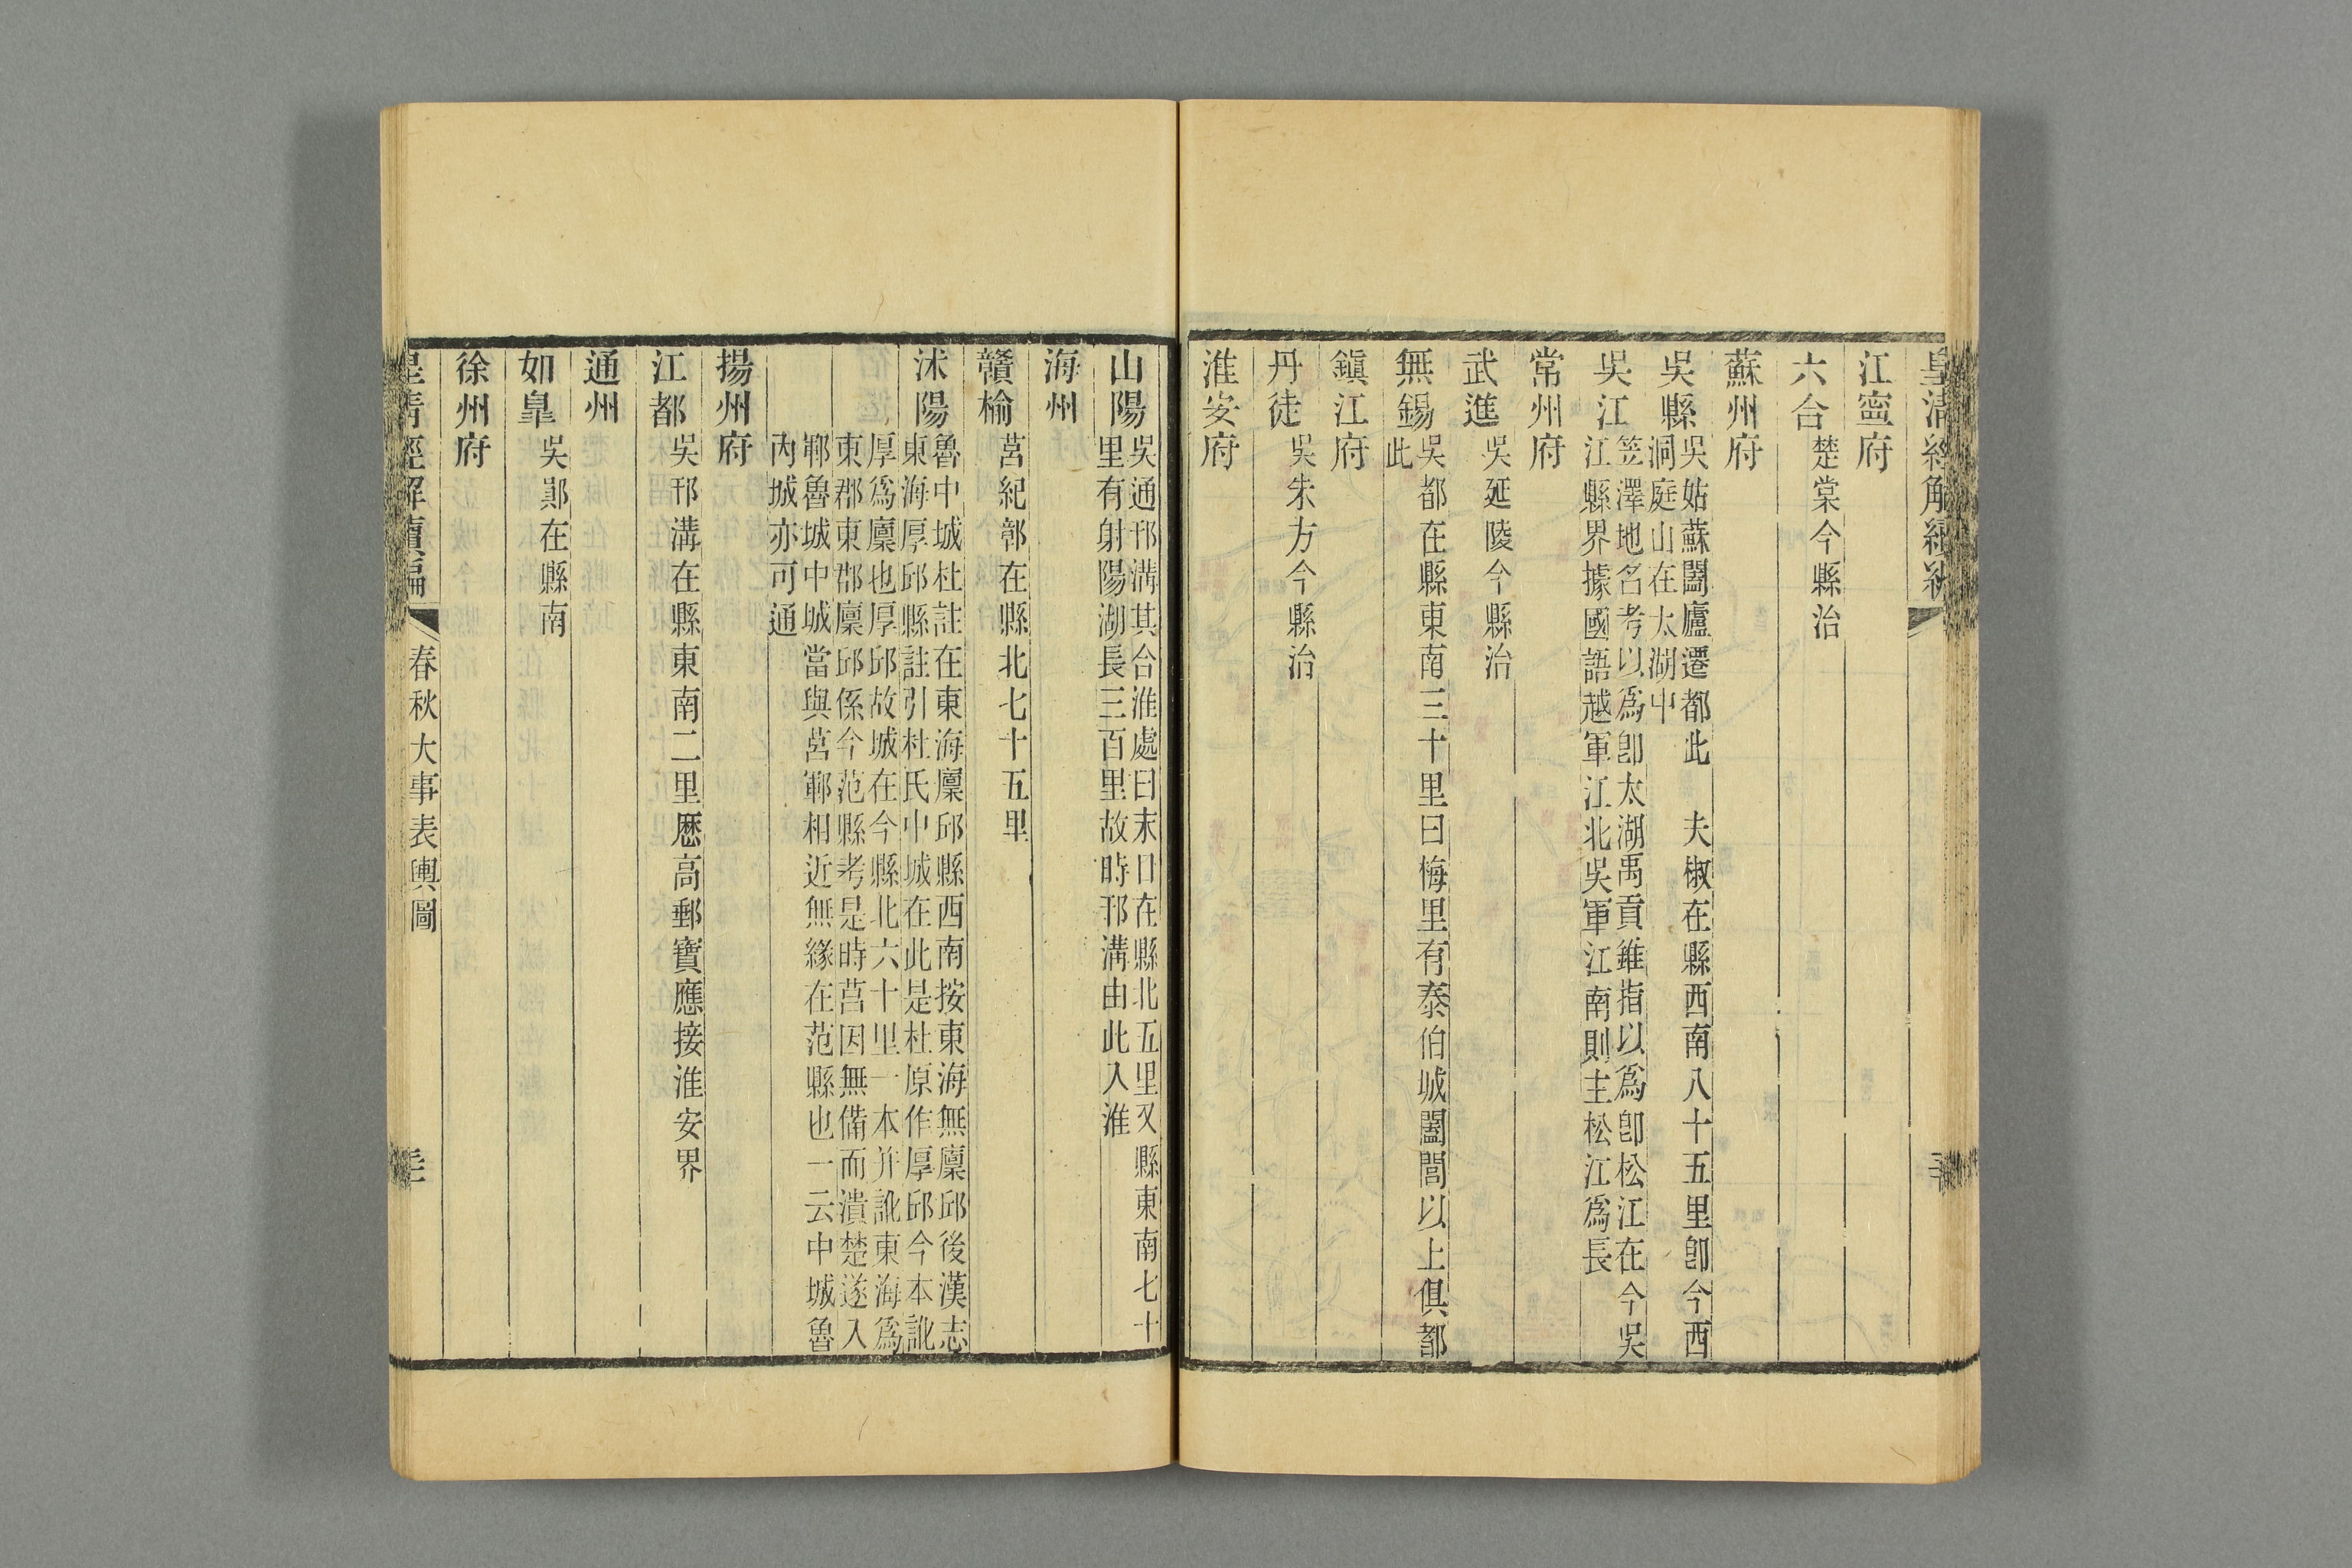 皇清經解續編
江寧府
六合楚棠今縣治
蘇州府
吳縣吳姑蘇闔廬遷都此　夫椒在縣西南八十五里卽今西
洞庭山在太湖中
吳江笠澤地名考以爲卽太湖禹貢錐指以爲卽松江在今吳
江縣界據國語越軍江北吳軍江南則主松江爲長
常州府
武進吳延陵今縣治
無錫吳都在縣東南三十里曰梅里有泰伯城闔閭以上俱都
此
鎭江府
丹徒吳朱方今縣治
淮安府
山陽吳通邗溝其合淮處曰末口在縣北五里又縣東南七十
里有射陽湖長三百里故時邗溝由此入淮
海州
贛榆莒紀鄣在縣北七十五里
沭陽魯中城杜註在東海廩邱縣西南按東海無廩邱後漢志
東海厚邱縣註引杜氏中城在此是杜原作厚邱今本訛
厚爲廩也厚邱故城在今縣北六十里一本并訛東海爲
東郡東郡廩邱係今范縣考是時莒因無備而潰楚遂入
鄆魯城中城當與莒鄆相近無緣在范縣也一云中城魯
內城亦可通
揚州府
江都吳邗溝在縣東南二里歷高郵寶應接淮安界
通州
如皐吳鄖在縣南
徐州府
皇清經解續編
春秋大事表輿圖